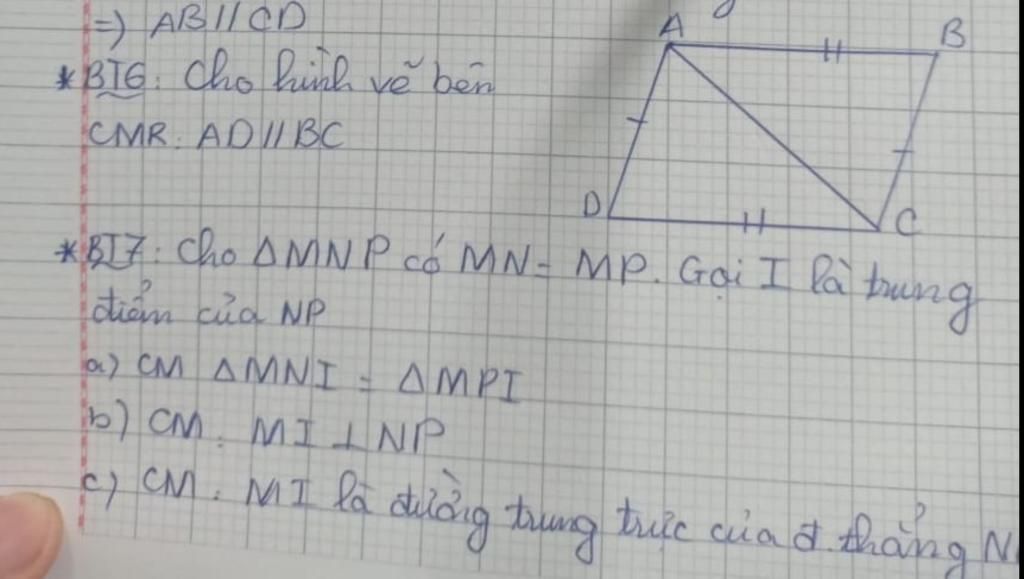 =) AB // CD
A
B
* BT6: Cho hình vẽ bên
CMR: AD // BC
D
C
* BT7: Cho ΔMNP có MN = MP. Gọi I là trung
điểm của NP
a) CM ΔMNI = ΔMPI
b) CM: MI ⊥ NP
c) CM: MI là đường trung trực của đ.thẳng N